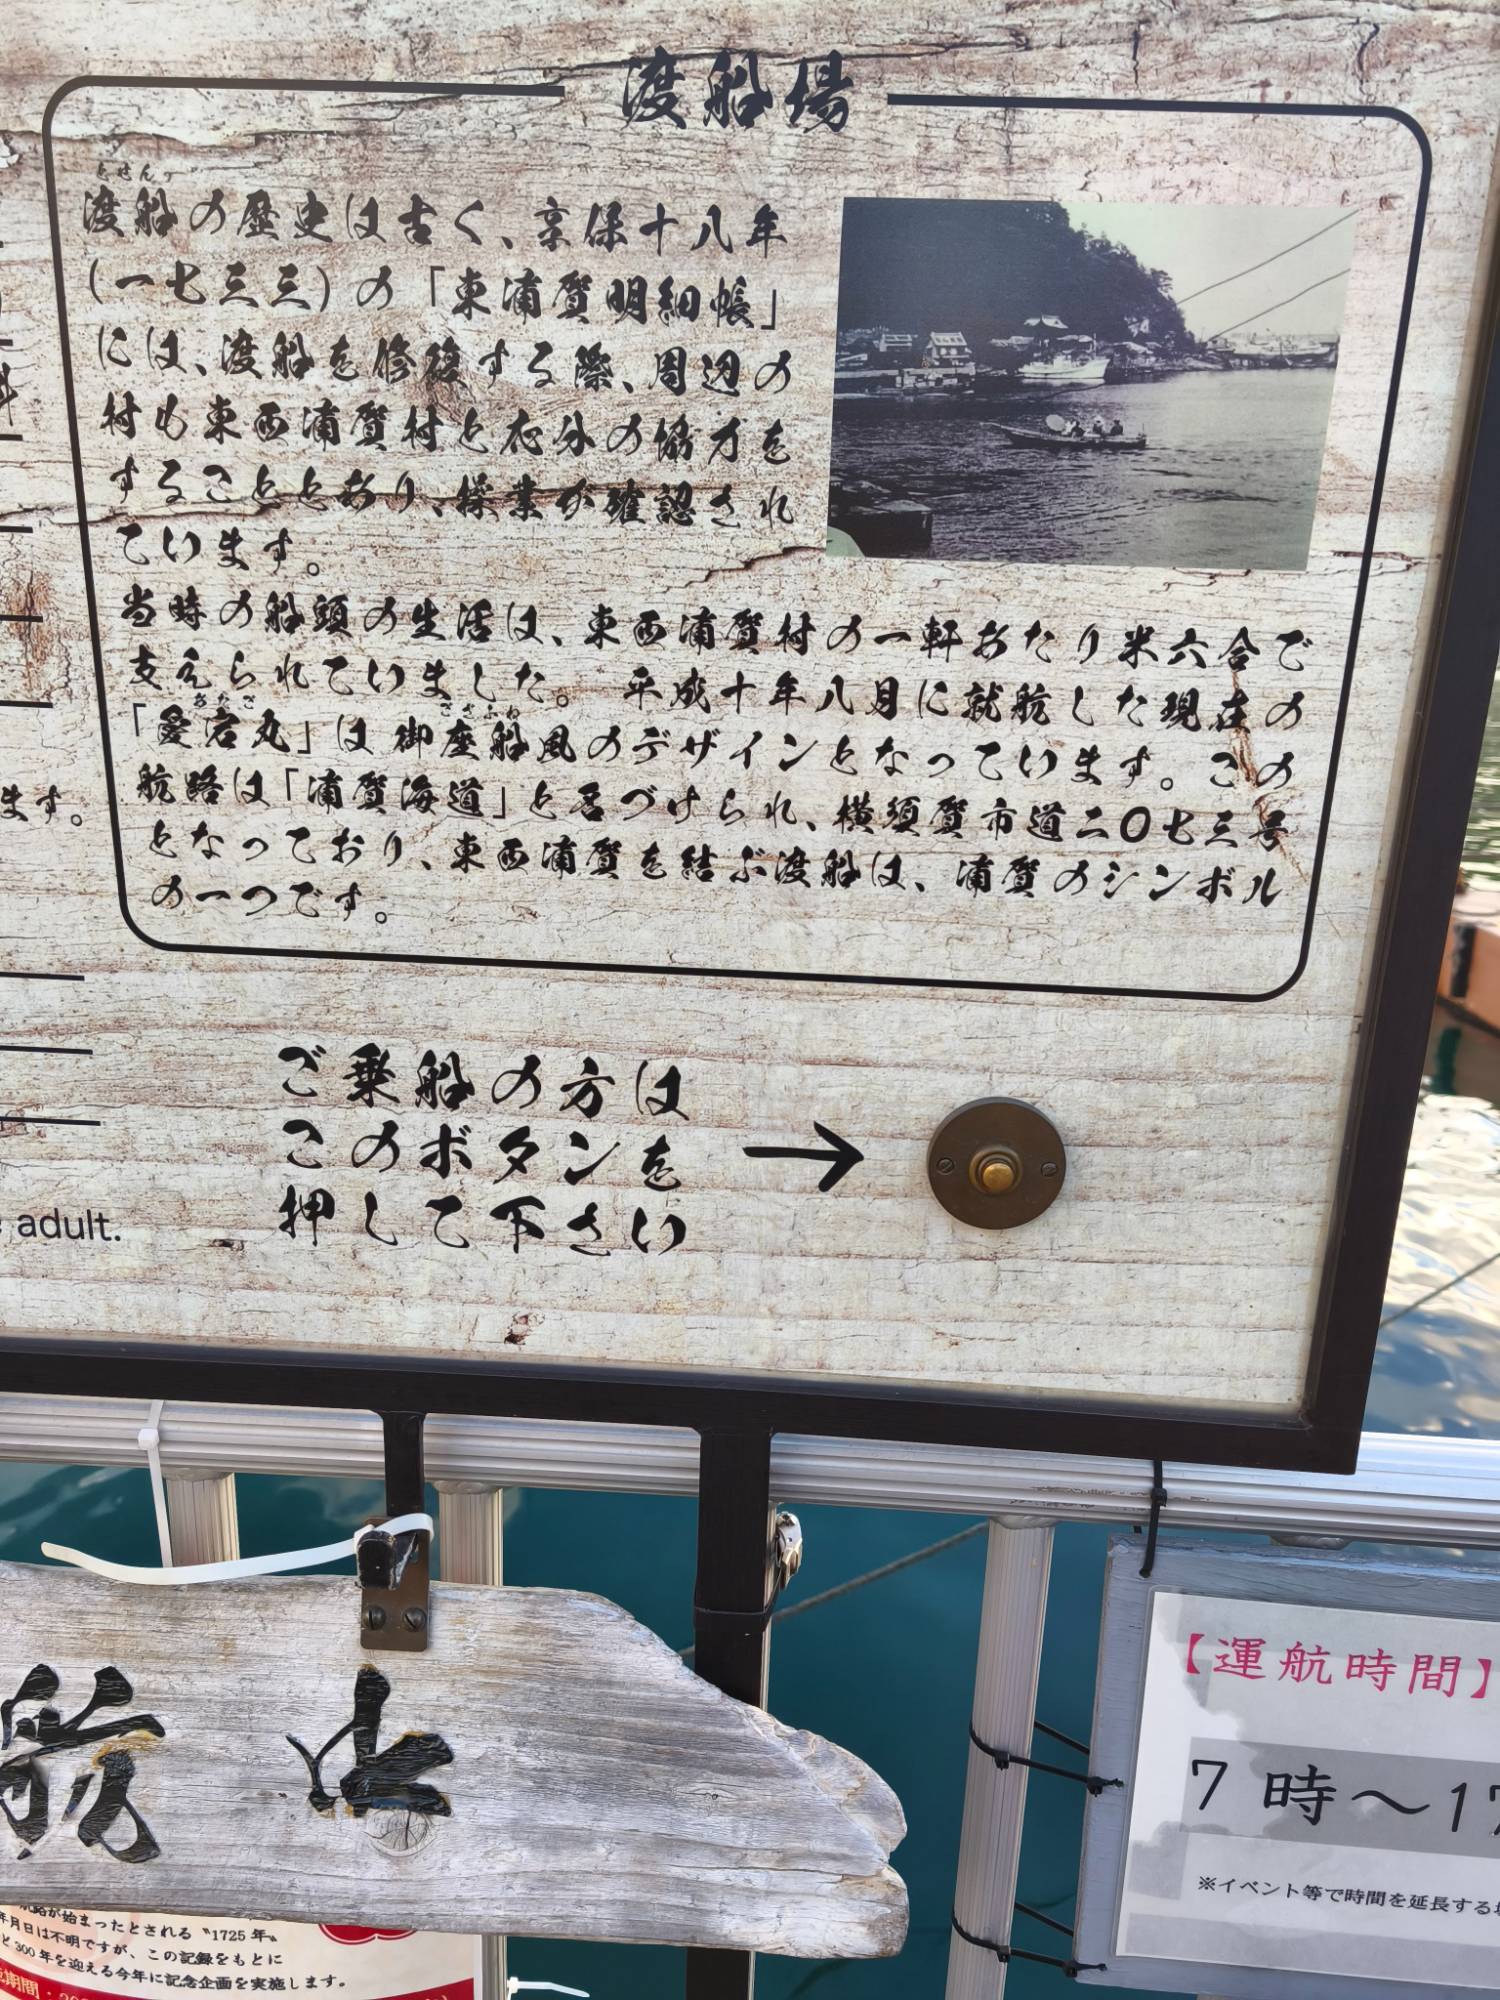 渡船場
渡船の歴史は古く、享保十八年
(一七三三)の「東浦賀明細帳」
には、渡船を修復する際、周辺の
村も東西浦賀村と応分の協力を
することとあり、操業が確認され
ています。
当時の船頭の生活は、東西浦賀村の一軒あたり米六合で
支えられていました。 平成十年八月に就航した現在の
「愛宕丸」は御座船風のデザインとなっています。この
航路は「浦賀海道」と名づけられ、横須賀市道二〇七三号
となっており、東西浦賀を結ぶ渡船は、浦賀のシンボル
の一つです。
ます。
ご乗船の方は
このボタンを
押して下さい
→
adult.
航
【運航時間】
7時~17
※イベント等で時間を延長する
航路が始まったとされる〝1725年〟
年月日は不明ですが、この記録をもとに
と300年を迎える今年に記念企画を実施します。
期間: